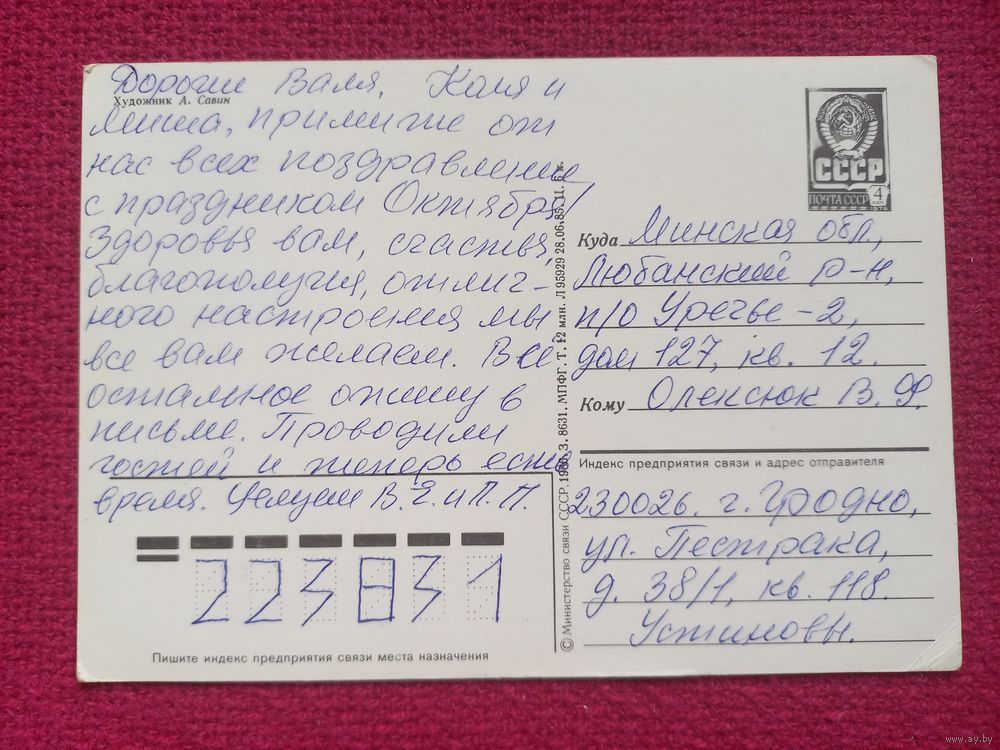 Дорогие Валя, Коля и
Художник А. Савин
Миша, примите от
нас всех поздравления
с праздником Октября!
Здоровья вам, счастья,
благополучия, отлич-
ного настроения мы
все вам желаем. Всё
остальное опишу в
письме. Проводили
гостей и теперь есть
время. Целуем В. Я. и П. П.
223831
Пишите индекс предприятия связи места назначения
© Министерство связи СССР. 1986. З. 8631. МПФГ. Т. 12 млн. Л 95929 28.06.85. Ц. 6 к.
СССР
ПОЧТА СССР 4
1976
Куда Минская обл,
Любанский р-н,
п/о Уречье-2,
дом 127, кв. 12.
Кому Олексюк В. Ф.
Индекс предприятия связи и адрес отправителя
230026. г. Гродно,
ул. Пестрака,
д. 38/1, кв. 118.
Устиновы.
www.ay.by